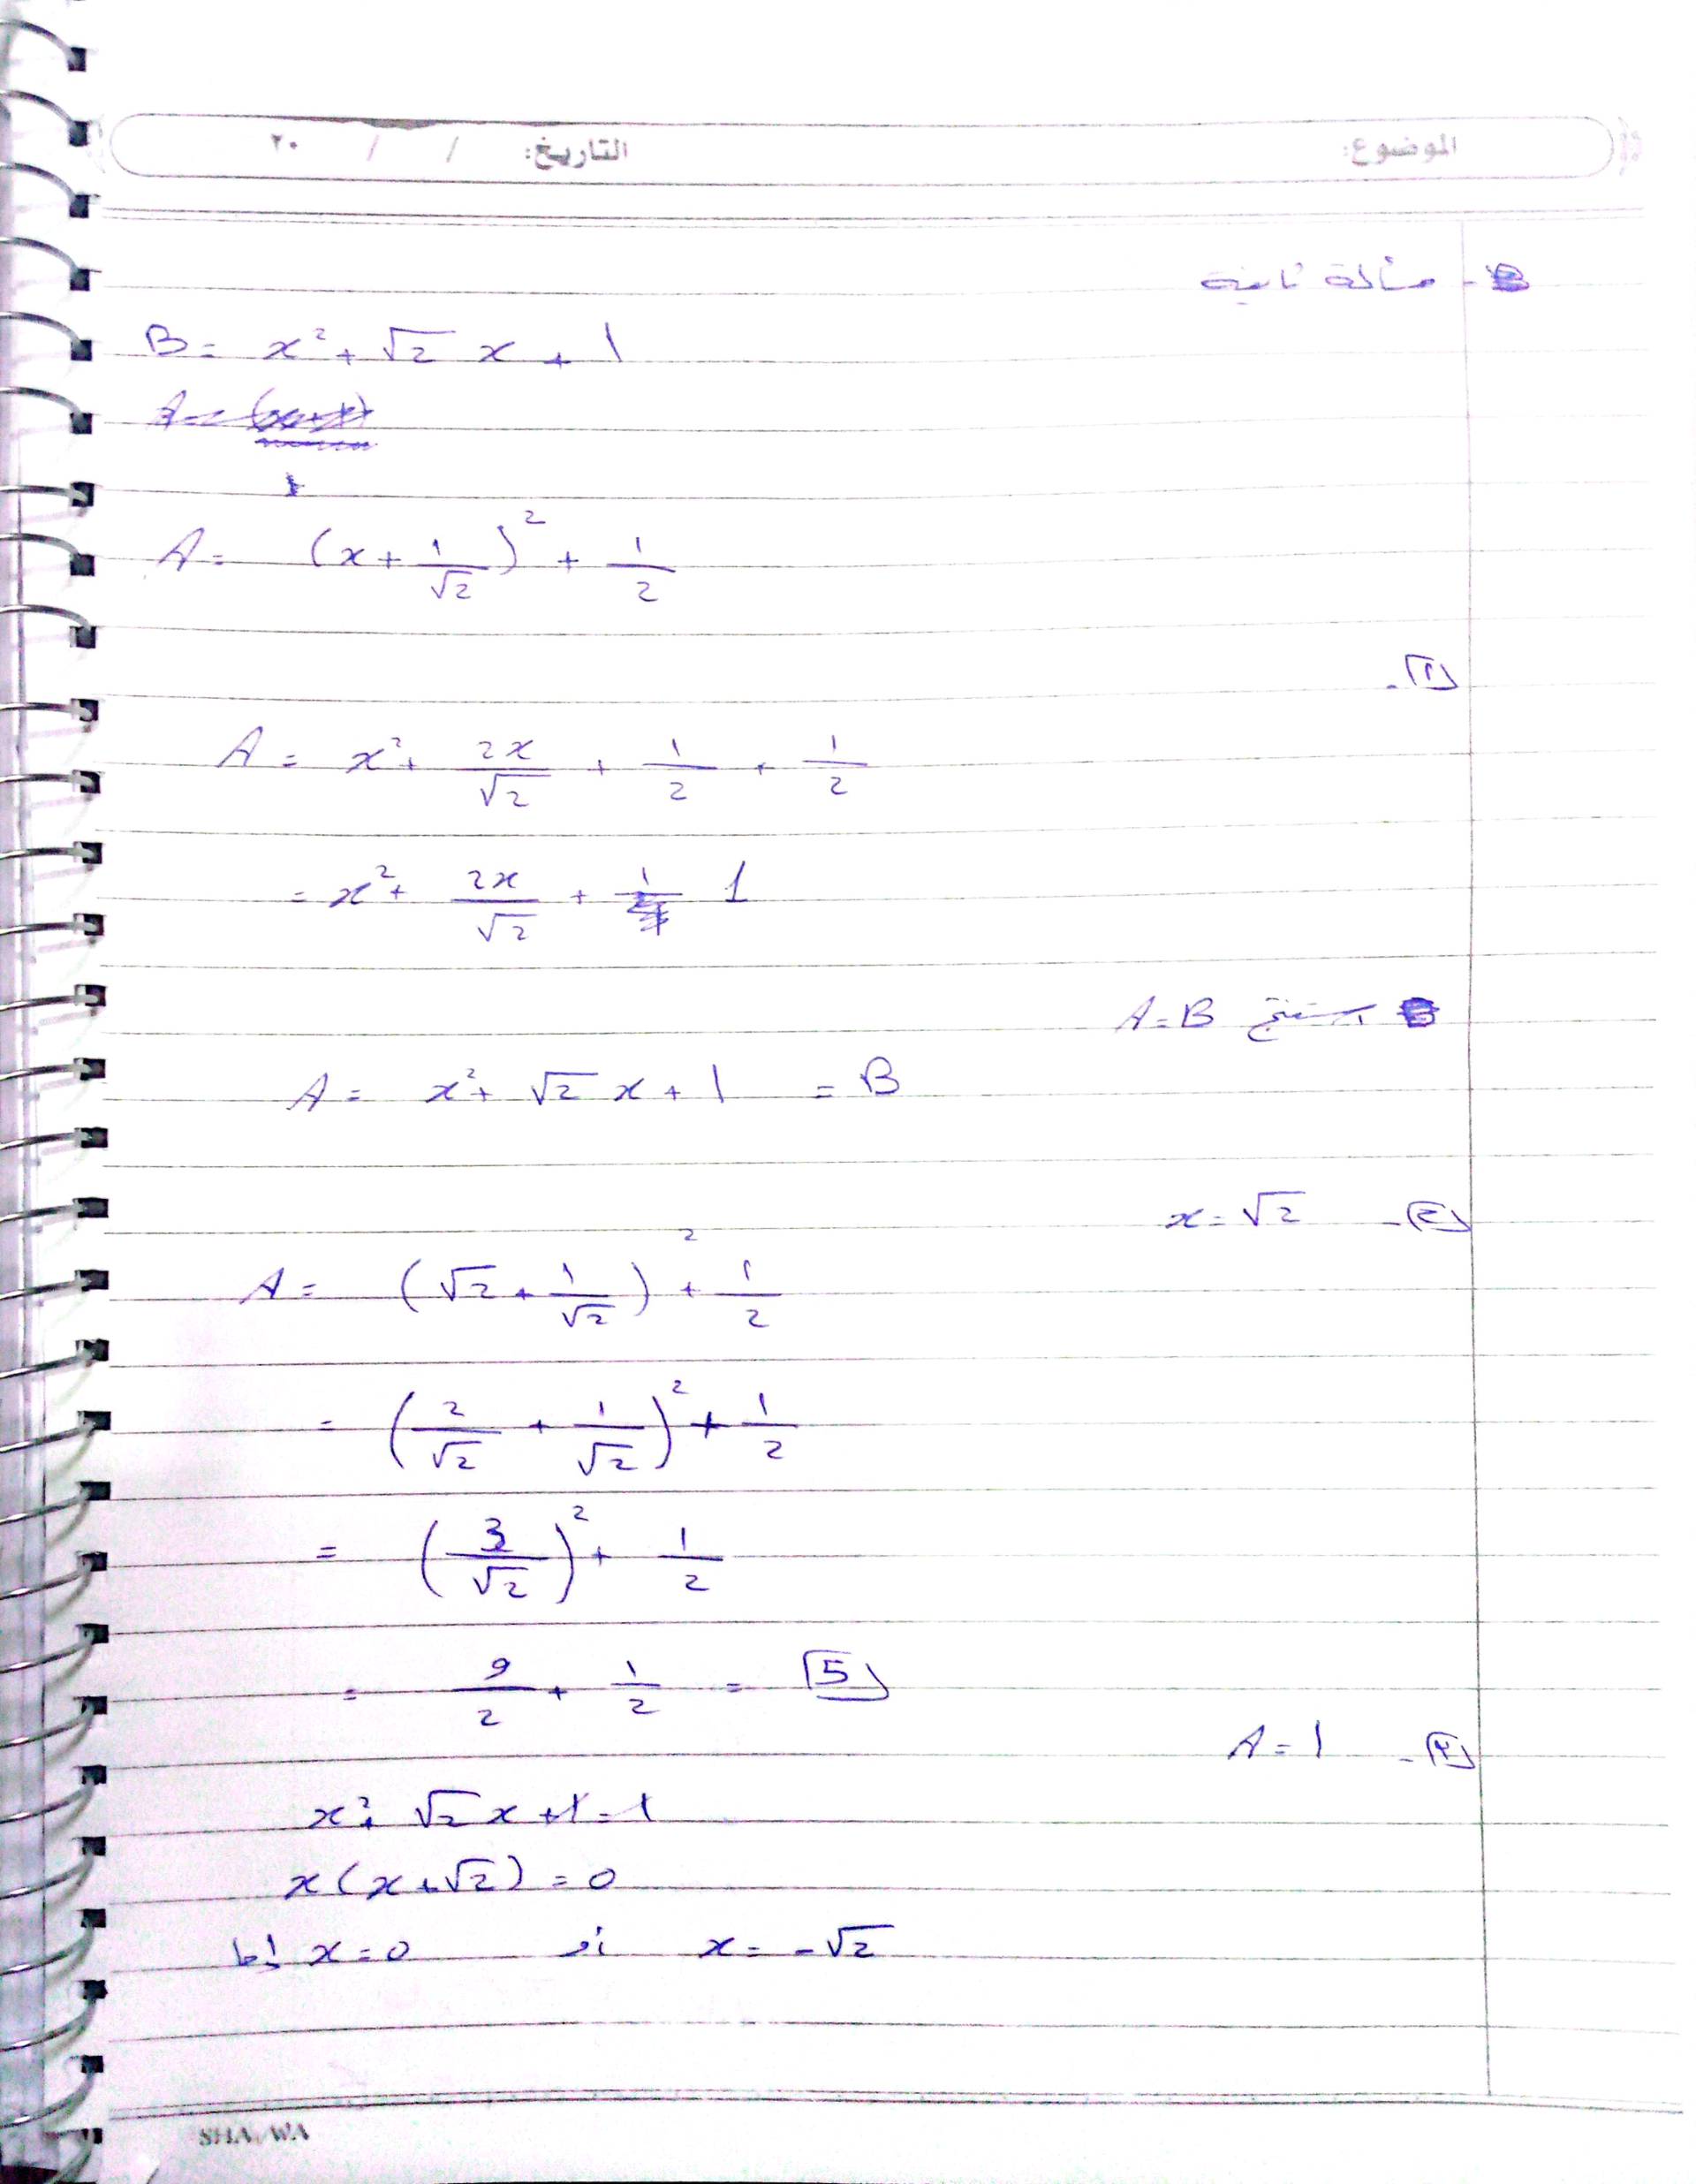 الموضوع: التاريخ: / / ٢٠
- مسألة ثانية
B = x² + √2 x + 1
A = (x + 1/√2)² + 1/2
1 -
A = x² + 2x/√2 + 1/2 + 1/2
= x² + 2x/√2 + 1
استنتج A = B
A = x² + √2 x + 1 = B
2 - x = √2
A = (√2 + 1/√2)² + 1/2
= (2/√2 + 1/√2)² + 1/2
= (3/√2)² + 1/2
= 9/2 + 1/2 = 5
٣ - A = 1
x² + √2 x + 1 = 1
x(x + √2) = 0
إما x = 0 أو x = -√2